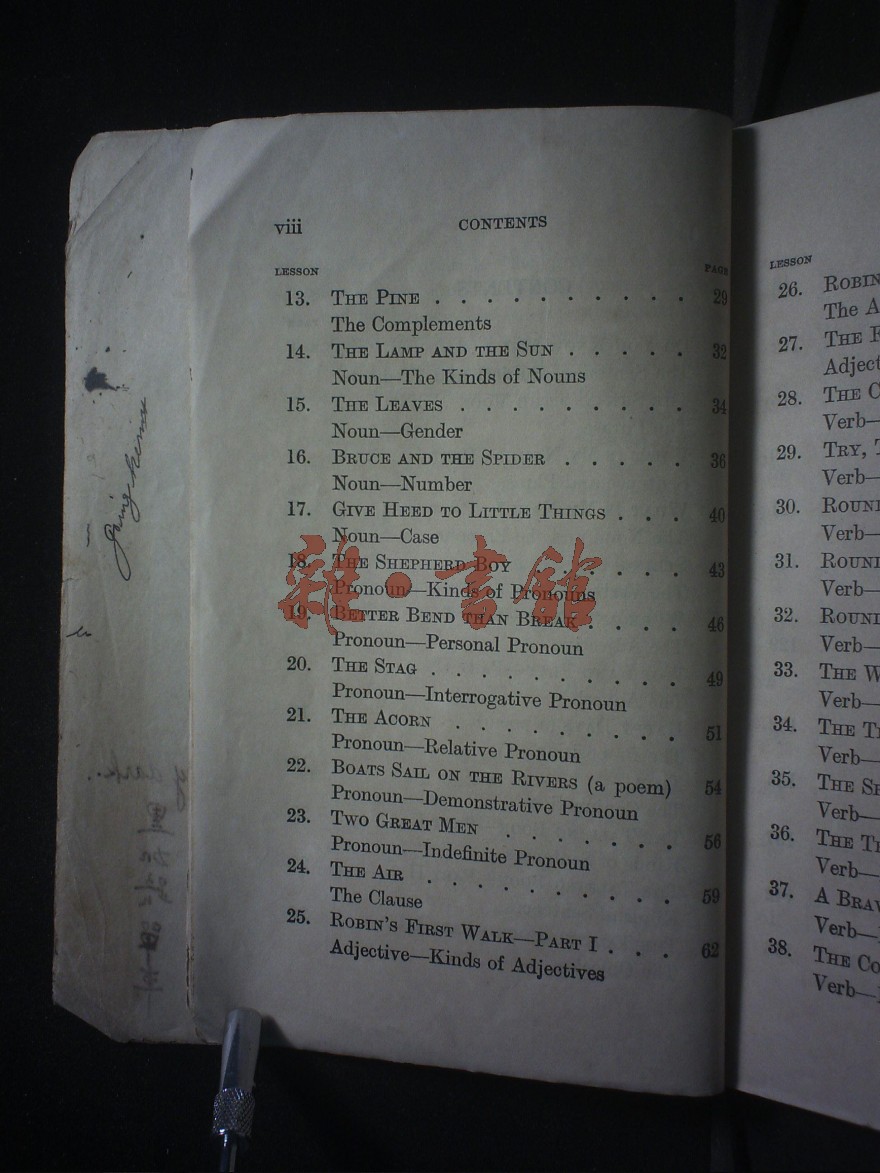 viii CONTENTS
LESSON PAGE
13. THE PINE . . . . . . . . . . 29
The Complements
14. THE LAMP AND THE SUN . . . . . 32
Noun—The Kinds of Nouns
15. THE LEAVES . . . . . . . . . 34
Noun—Gender
16. BRUCE AND THE SPIDER . . . . . 36
Noun—Number
17. GIVE HEED TO LITTLE THINGS . . . 40
Noun—Case
18. THE SHEPHERD BOY . . . . . . 43
Pronoun—Kinds of Pronouns
19. BETTER BEND THAN BREAK . . . . 46
Pronoun—Personal Pronoun
20. THE STAG . . . . . . . . . . 49
Pronoun—Interrogative Pronoun
21. THE ACORN . . . . . . . . . 51
Pronoun—Relative Pronoun
22. BOATS SAIL ON THE RIVERS (a poem) 54
Pronoun—Demonstrative Pronoun
23. TWO GREAT MEN . . . . . . . 56
Pronoun—Indefinite Pronoun
24. THE AIR . . . . . . . . . . 59
The Clause
25. ROBIN'S FIRST WALK—PART I . . . 62
Adjective—Kinds of Adjectives
雜·書館
LESSON
26. ROBIN
The A
27. THE F
Adject
28. THE C
Verb—
29. TRY, T
Verb—
30. ROUND
Verb—
31. ROUND
Verb—
32. ROUND
Verb—
33. THE W
Verb—
34. THE T
Verb—
35. THE S
Verb—
36. THE T
Verb—
37. A BRAV
Verb—
38. THE CO
Verb—